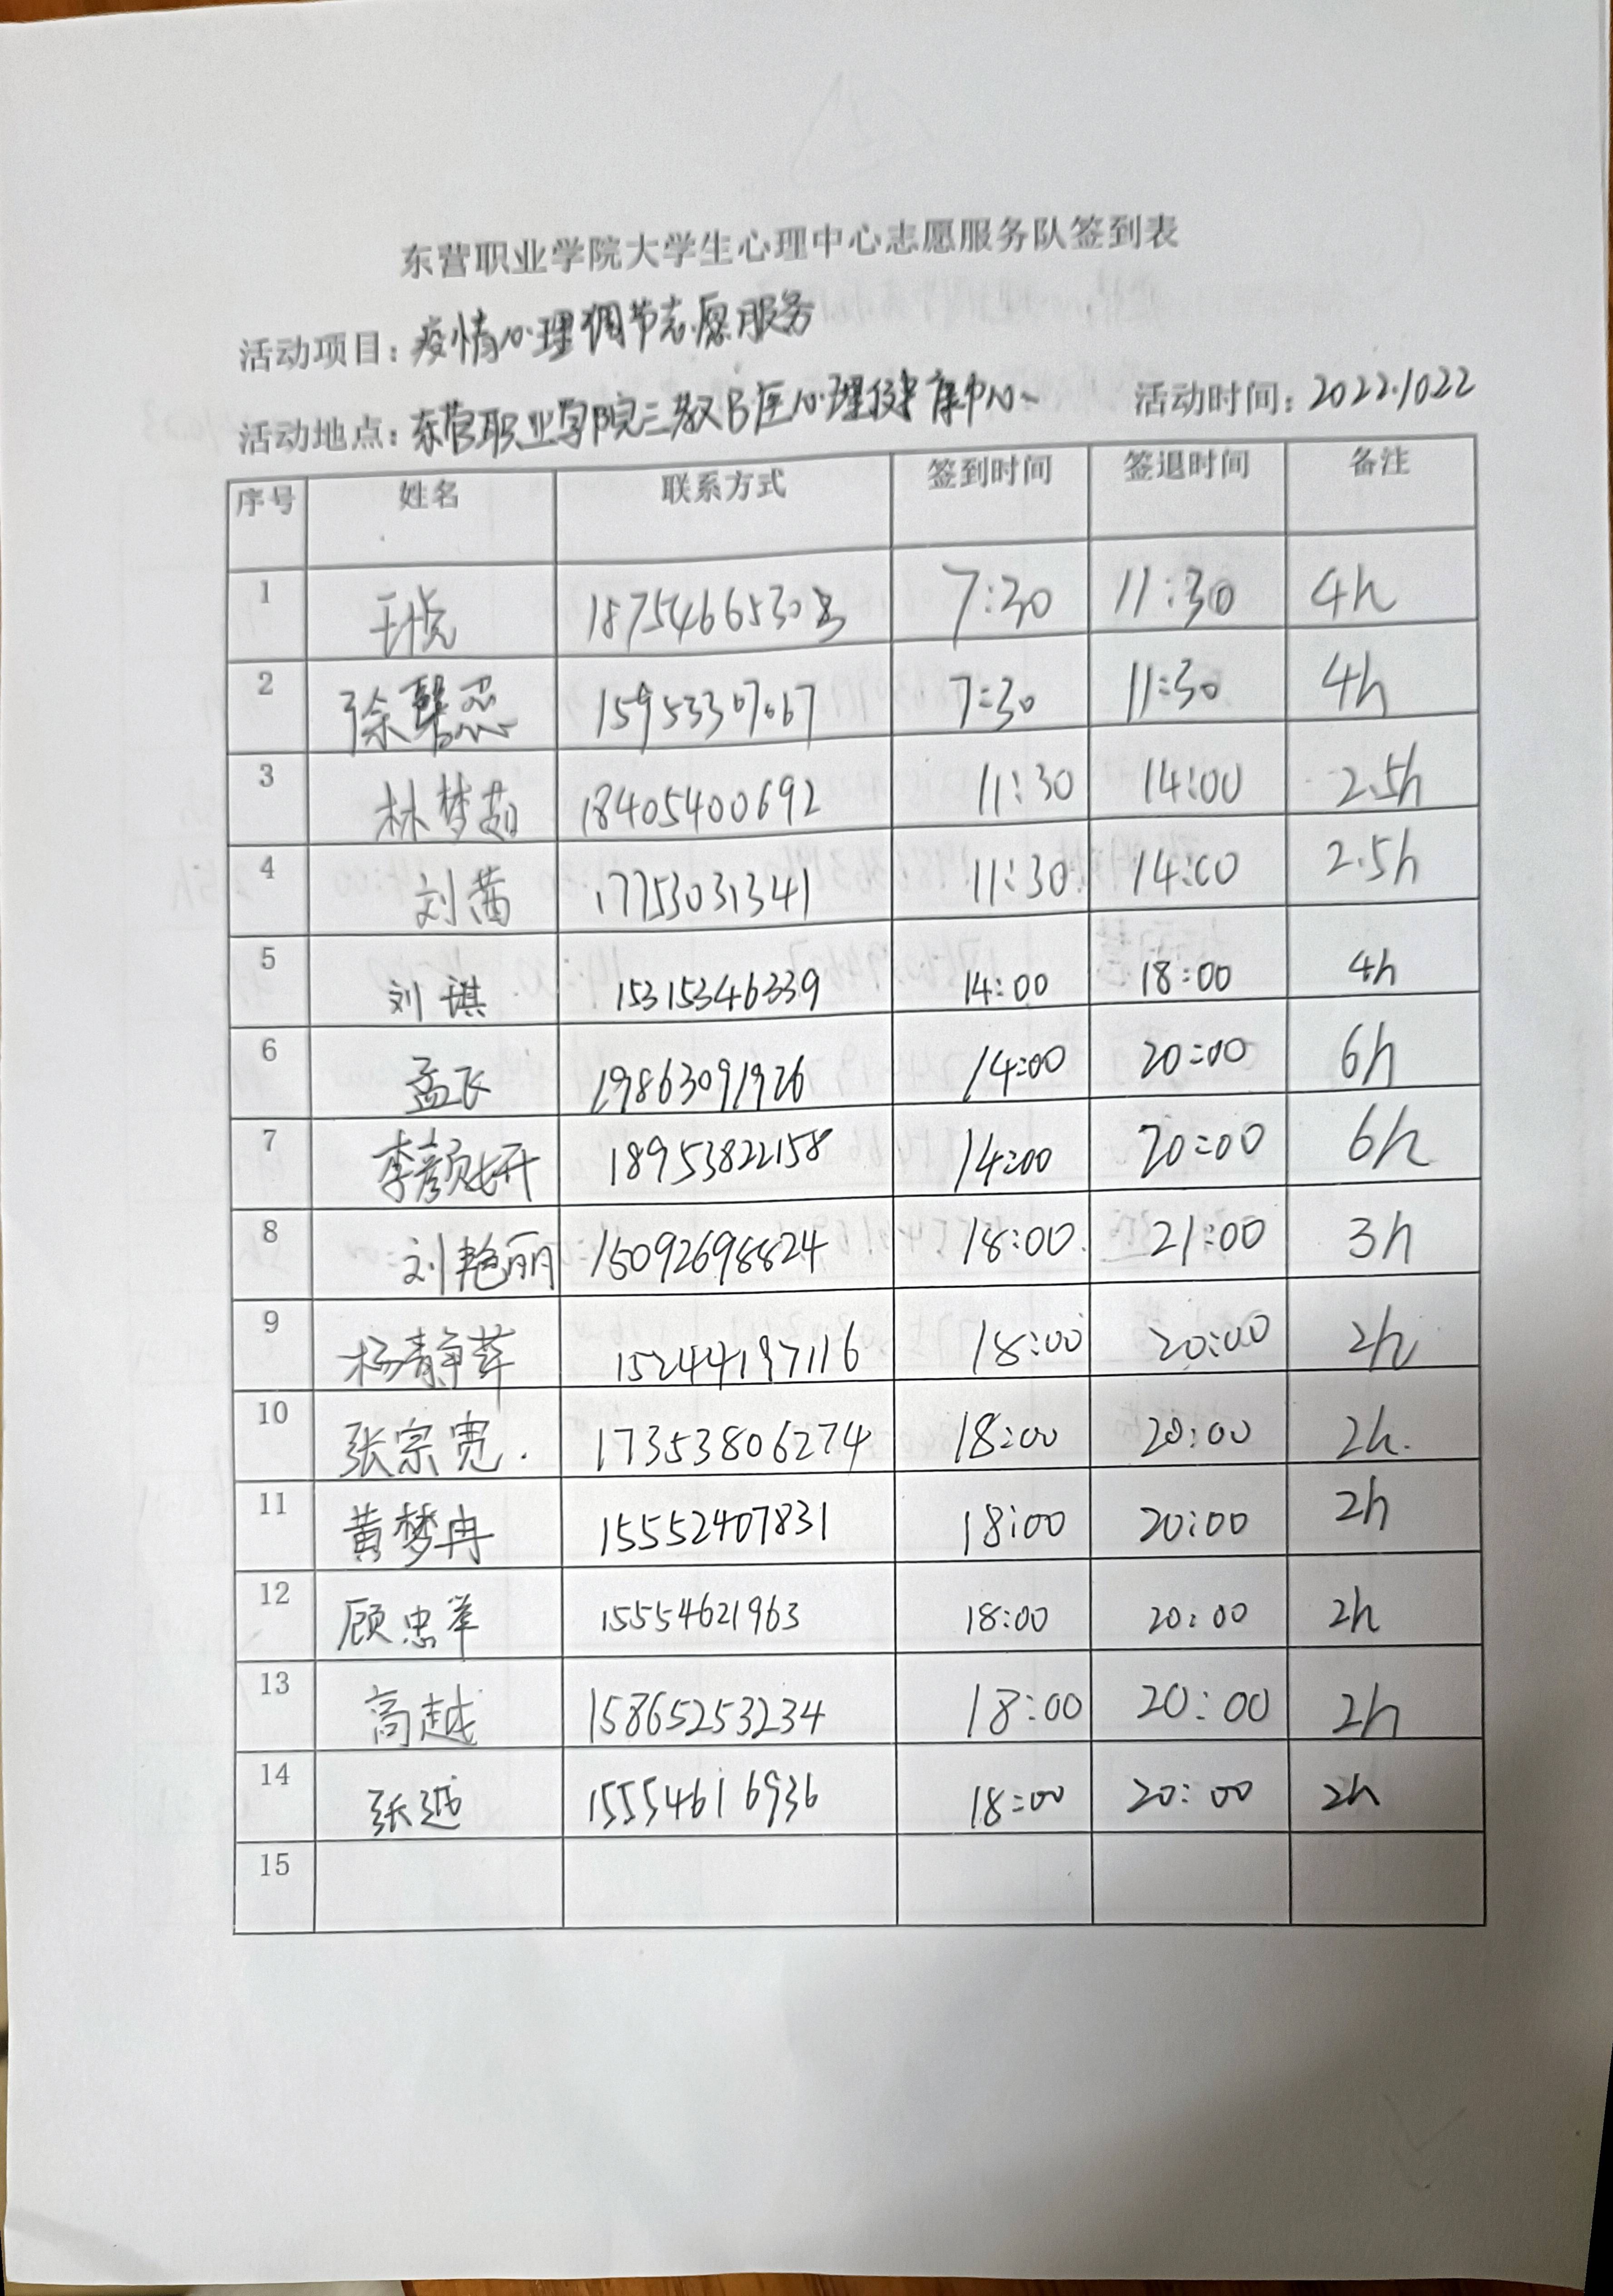 东营职业学院大学生心理中心志愿服务队签到表
活动项目：疫情心理调节志愿服务
活动地点：东营职业学院三教B区心理健康中心 活动时间：2022.1022
序号 姓名 联系方式 签到时间 签退时间 备注
1 187546653 7:30 11:30 4h
2 徐馨忍 15953307067 7:30 11:30 4h
3 林梦茹 18405400692 11:30 14:00 2.5h
4 刘茜 17753031341 11:30 14:00 2.5h
5 刘琪 15315346339 14:00 18:00 4h
6 孟飞 19863091926 14:00 20:00 6h
7 李颜妍 18953822158 14:00 20:00 6h
8 刘艳丽 15092698824 18:00 21:00 3h
9 杨静萍 15244197116 18:00 20:00 2h
10 张宗宽. 17353806274 18:00 20:00 2h.
11 黄梦冉 15552407831 18:00 20:00 2h
12 顾忠举 15554621963 18:00 20:00 2h
13 高越 15865253234 18:00 20:00 2h
14 张越 15554616936 18:00 20:00 2h
15